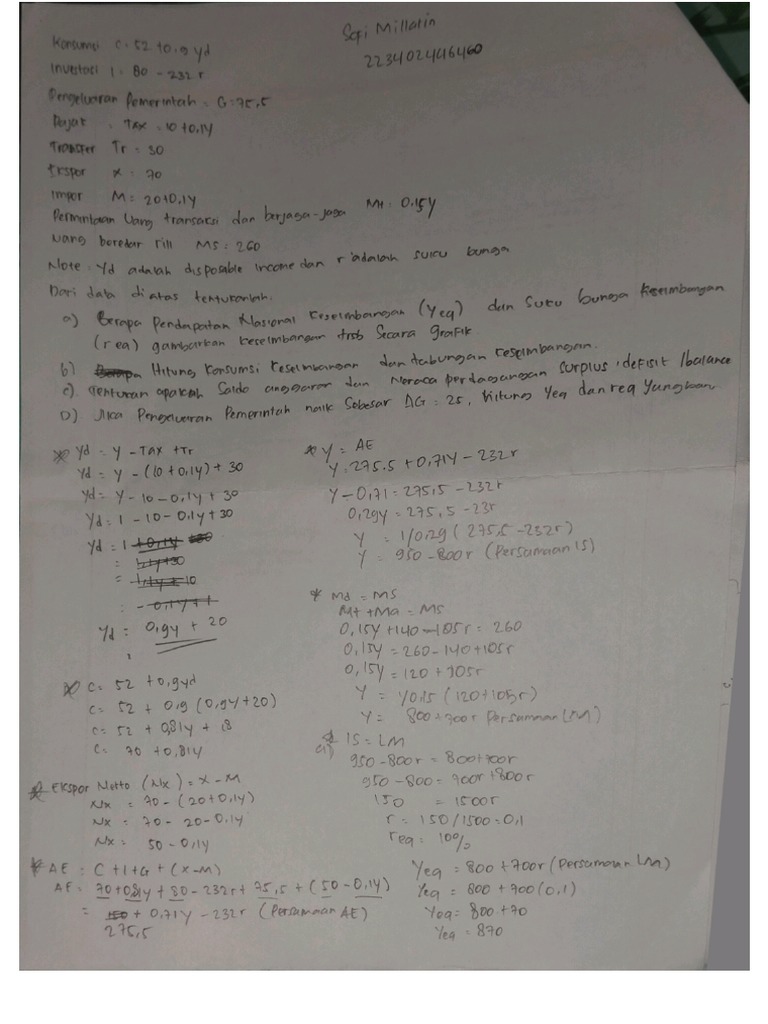 Sofi Millatin
223402446460
Konsumsi C = 52 + 0,9 yd
Investasi I = 80 - 232 r
Pengeluaran Pemerintah : G = 75,5
Pajak : TAX = 10 + 0,1Y
Transfer Tr = 30
Ekspor X = 70
Impor M = 20 + 0,1Y
Permintaan Uang transaksi dan berjaga-jaga Mt = 0.15Y
Uang beredar riil MS = 260
Note : Yd adalah disposable income dan r adalah suku bunga
Dari data diatas tentukanlah.
a) Berapa Pendapatan Nasional Keseimbangan (Yeq) dan Suku bunga Keseimbangan
(req) gambarkan keseimbangan trsb Secara grafik.
b) Hitung Konsumsi Keseimbangan dan tabungan keseimbangan.
c) Tentukan apakah Saldo anggaran dan Neraca perdagangan surplus, defisit / balance
D) Jika Pengeluaran Pemerintah naik Sebesar ΔG = 25, hitung Yeq dan req
* Yd = Y - TAX + Tr
Yd = Y - (10 + 0,1Y) + 30
Yd = Y - 10 - 0,1Y + 30
Yd = 1 - 10 - 0,1Y + 30
Yd = 1
Yd = 0,9Y + 20
* C = 52 + 0,9yd
C = 52 + 0,9 (0,9Y + 20)
C = 52 + 0,81Y + 18
C = 70 + 0,81Y
* Ekspor Netto (Nx) = X - M
Nx = 70 - (20 + 0,1Y)
Nx = 70 - 20 - 0,1Y
Nx = 50 - 0,1Y
* AE : C + I + G + (X - M)
AE = 70 + 0,81Y + 80 - 232r + 75,5 + (50 - 0,1Y)
= 275,5 + 0,71Y - 232r (Persamaan AE)
* Y = AE
Y = 275.5 + 0,71Y - 232r
Y - 0,71 = 275,5 - 232r
0,29Y = 275,5 - 23r
Y = 1/0,29 (275,5 - 232r)
Y = 950 - 800r (Persamaan IS)
* Md = MS
Mt + Ma = MS
0,15Y + 140 - 105r = 260
0,15Y = 260 - 140 + 105r
0,15Y = 120 + 105r
Y = 1/0.15 (120 + 105r)
Y = 800 + 700r Persamaan LM)
a) IS = LM
950 - 800r = 800 + 700r
950 - 800 = 700r + 800r
150 = 1500r
r = 150/1500 = 0,1
req = 10%
Yeq = 800 + 700r (Persamaan LM)
Yeq = 800 + 700 (0,1)
Yeq = 800 + 70
Yeq = 870